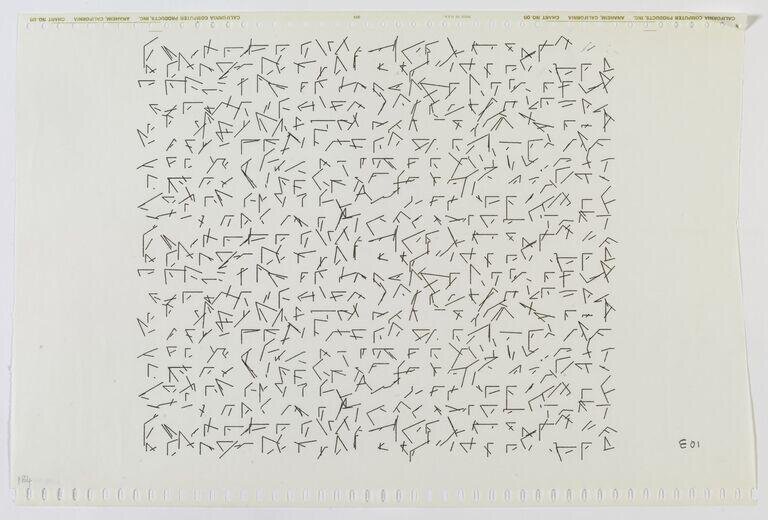 CALIFORNIA COMPUTER PRODUCTS, INC. ANAHEIM, CALIFORNIA CHART NO. MADE IN U.S.A. CALIFORNIA COMPUTER PRODUCTS, INC. ANAHEIM, CALIFORNIA CHART NO.
E01